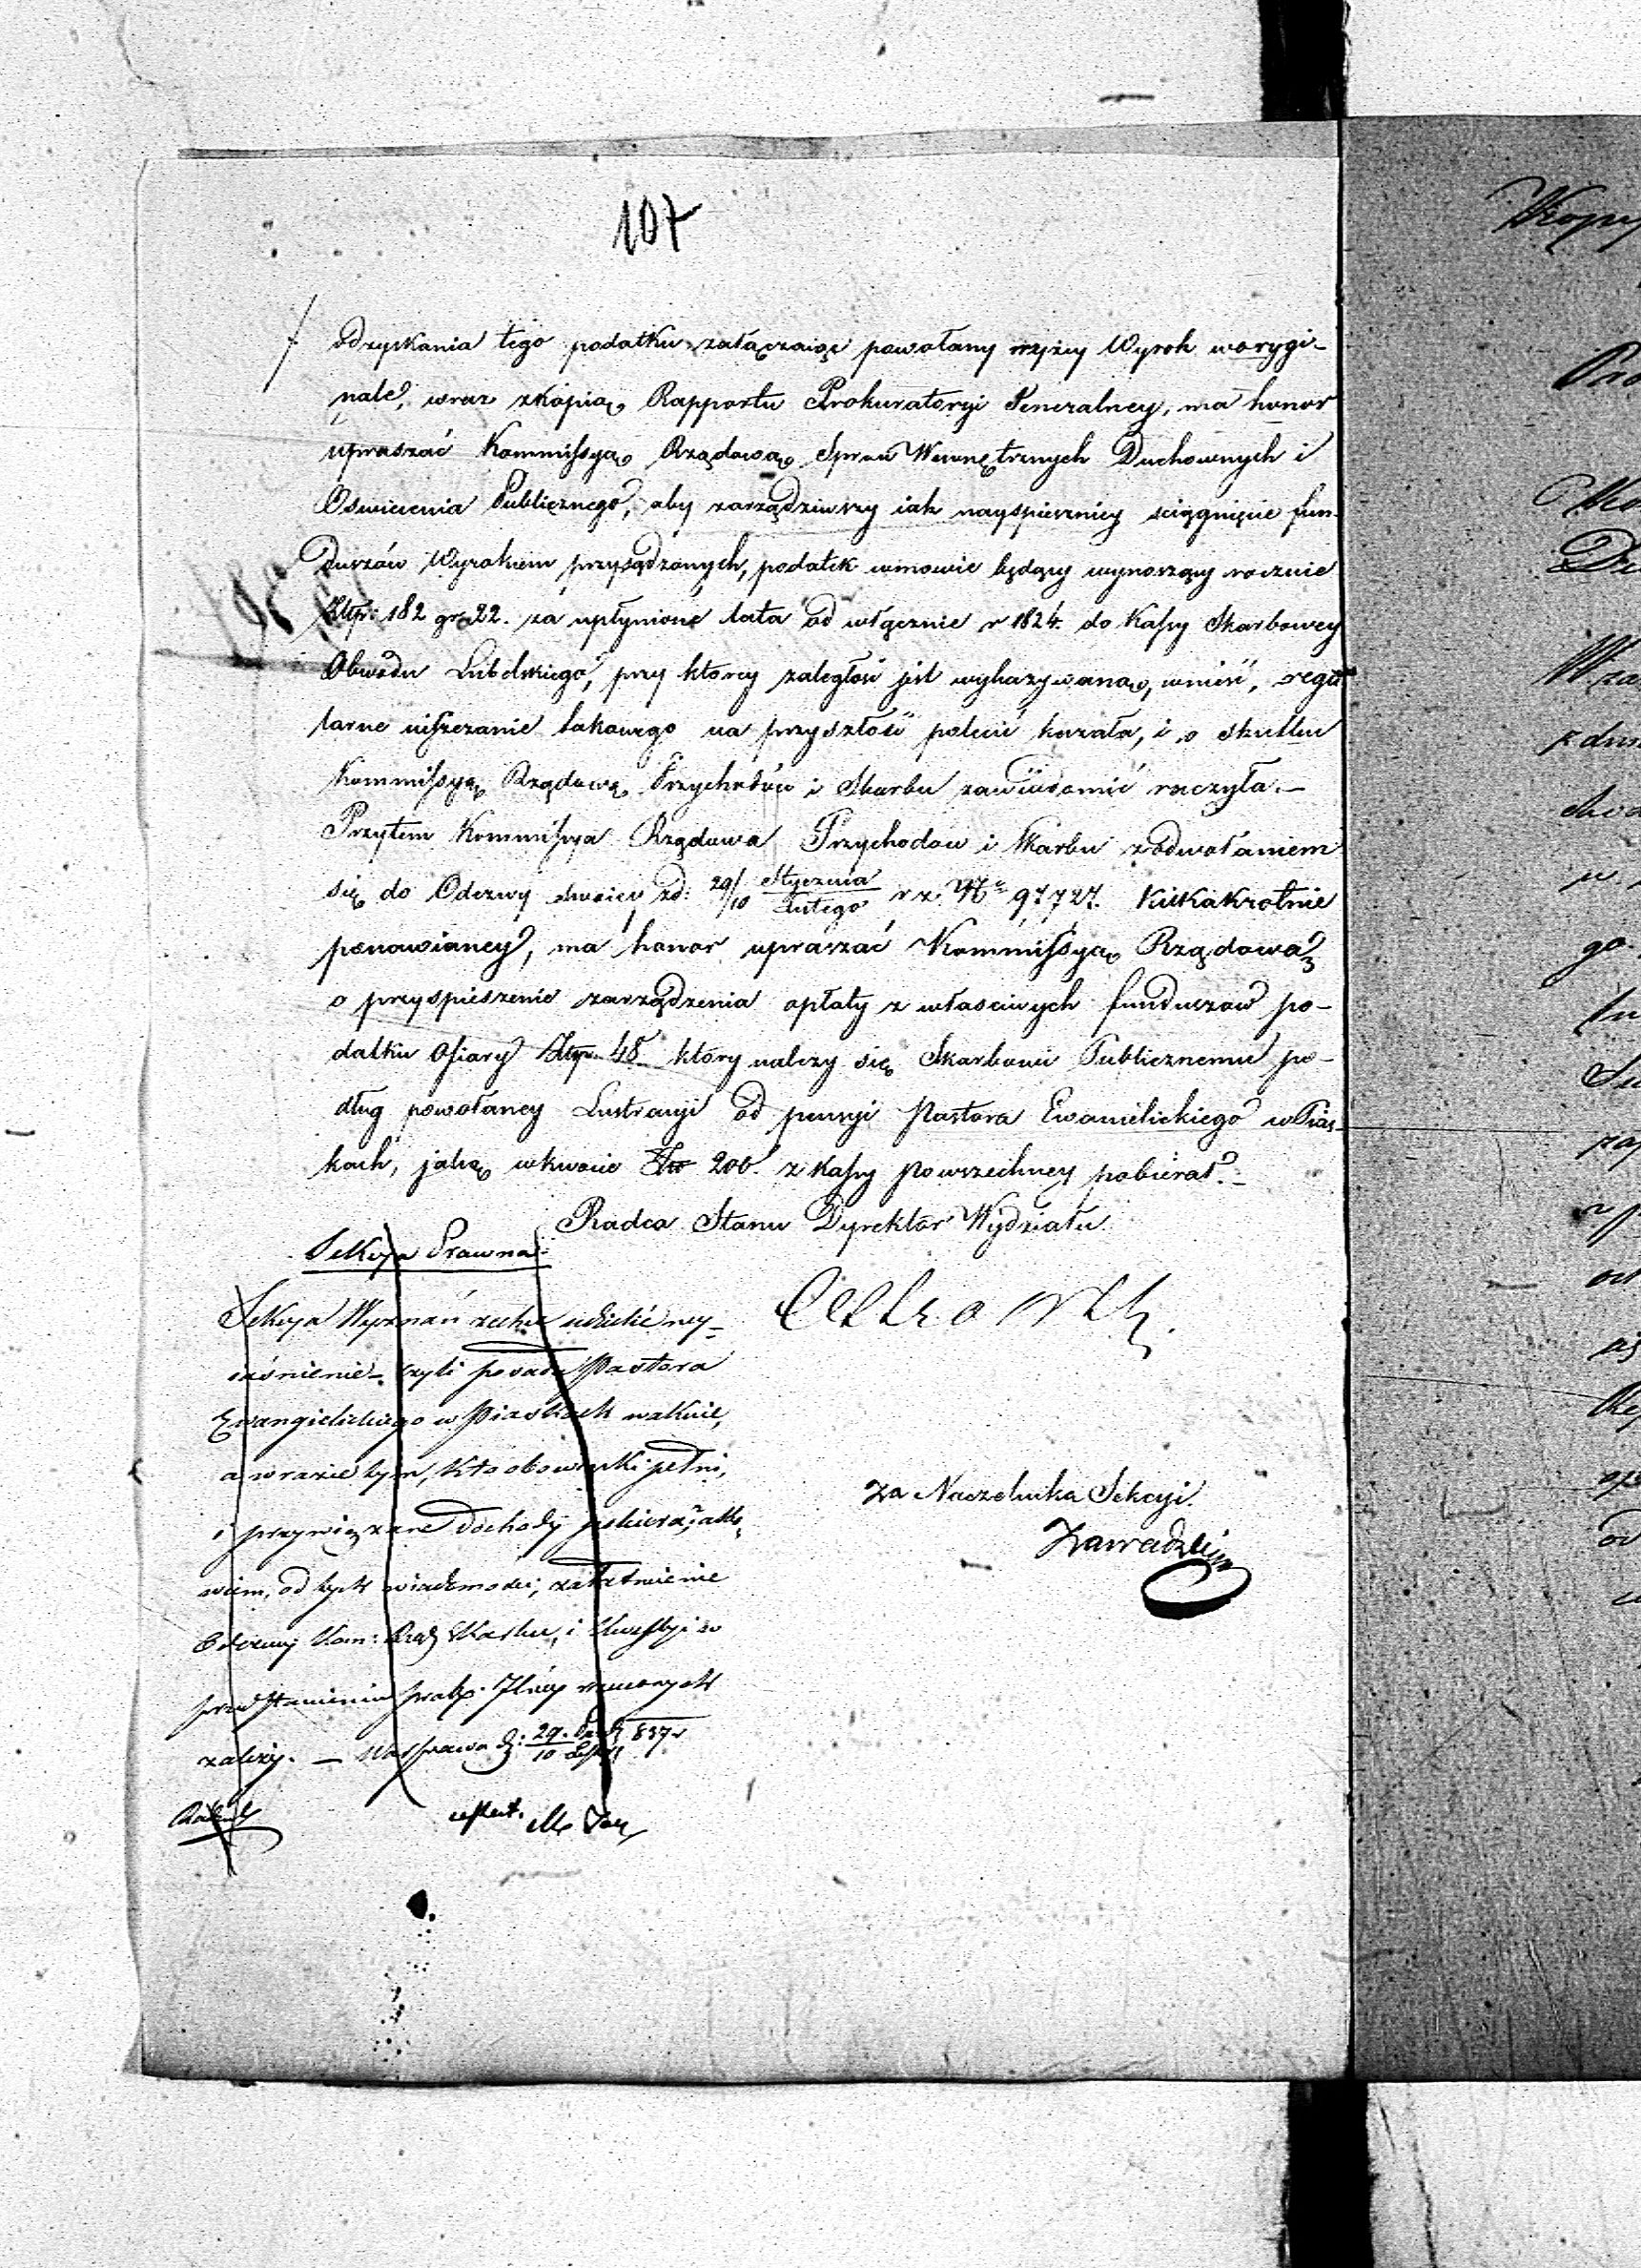 107
odzyskania tego podatku załączaiąc powołany wyżey Wyrok worygi-
nale, wraz zkopią Rapportu Prokuratoryi Jeneralney, ma honor
upraszać Kommissyą Rządową Spraw Wewnętrznych Duchownych i
Oświecenia Publicznego, aby zarządziwszy iak nayspieszniey sciągnięcie fun-
duszów Wyrokiem przysądzonych, podatek wmowie będący wynoszący rocznie
Złp: 182 gr 22. za upłynione lata od włącznie r 1824. do Kassy Skarbowey
Obwodu Lubelskiego, przy którey zaległość jest wykazywaną, wnieść, regu
larne uiszczanie takowego na przyszłość polecić kazała, i o skutku
Kommissyą Rządową Przychodów i Skarbu zawiadomić raczyła.-
Przytem Kommissya Rządowa Przychodow i Skarbu z odwołaniem
się do Odezwy swoiey zd: 29/10 Stycznia/Lutego r z. No 97727. kilkakrotnie
ponowioney, ma honor upraszać Kommissyą Rządową
o przyspieszenie zarządzenia opłaty z własciwych funduszów po-
datku Ofiary Złp. 48 który należy się Skarbowi Publicznemu po-
dług powołaney Lustracyi od pensyi Pastora Ewanielickiego w Pias-
kach, jaką wkwocie 200. z Kassy Powszechney pobierał.-
Radca Stanu Dyrektor Wydziału
Sekcya Prawna
Sekcya Wyznań zechce udzielić wy-
iaśnienie, czyli posada Pastora
Ewangielickiego w Piaskach wakuie,
a w razie tym, kto obowiązki pełni,
i przywiązane dochody pobiera, albo-
wiem, od tych wiadomości, załatwienie
Odezwy Kom: Rząd Skarbu, i kwestyi w
przedstawieniu
zależy. — Warszawa d: 29./10 837 r
Za Naczelnika Sekcyi.
Zawadzki